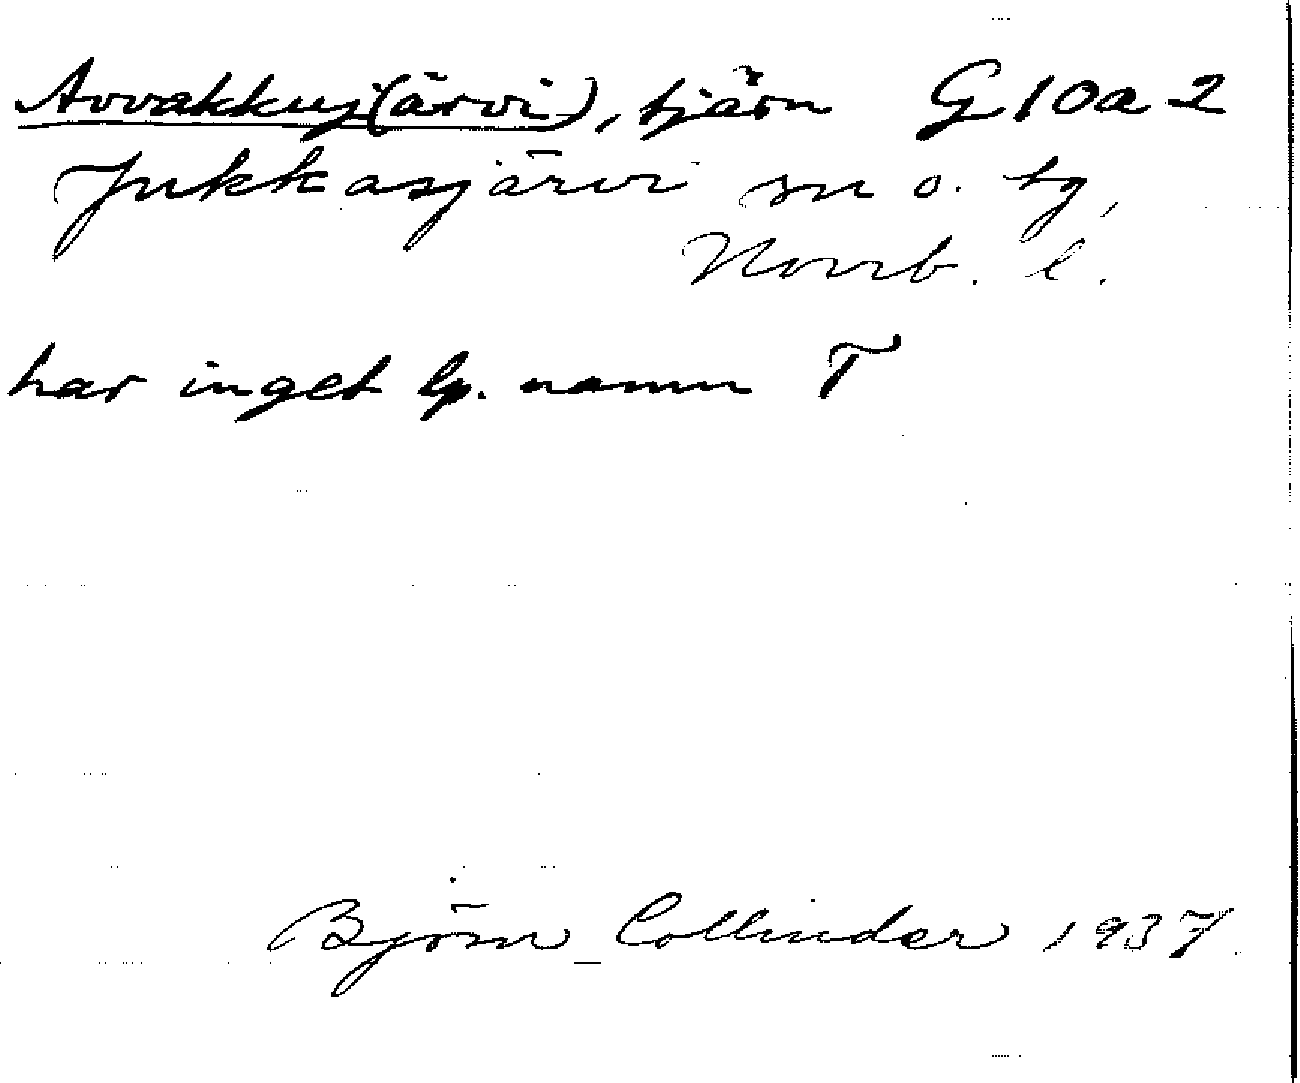 Avvakkuj(ärvi), tjärn G10a2
Jukkasjärvi sn o. tg,
Norrb. l.
har inget lp. namn T
Björn Collinder 1937